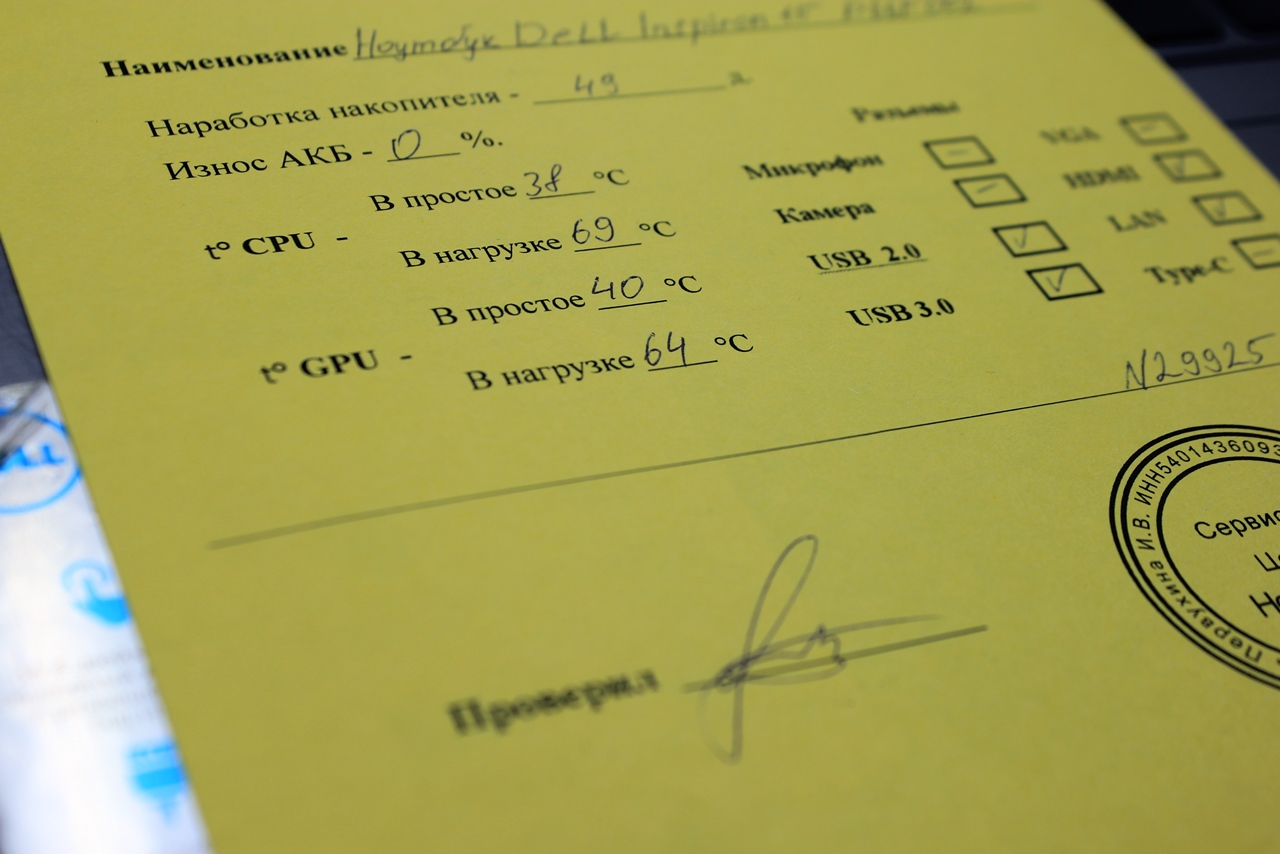 Наименование Ноутбук DELL Inspiron 15
Наработка накопителя - 49
Износ АКБ - 0 %.
t° CPU -
В простое 38 °C
В нагрузке 69 °C
t° GPU -
В простое 40 °C
В нагрузке 64 °C
Разъемы
Микрофон
Камера
USB 2.0
USB 3.0
VGA
HDMI
LAN
Type-C
N29925
Первухина И.В. ИНН5401436093
Сервис
Проверил